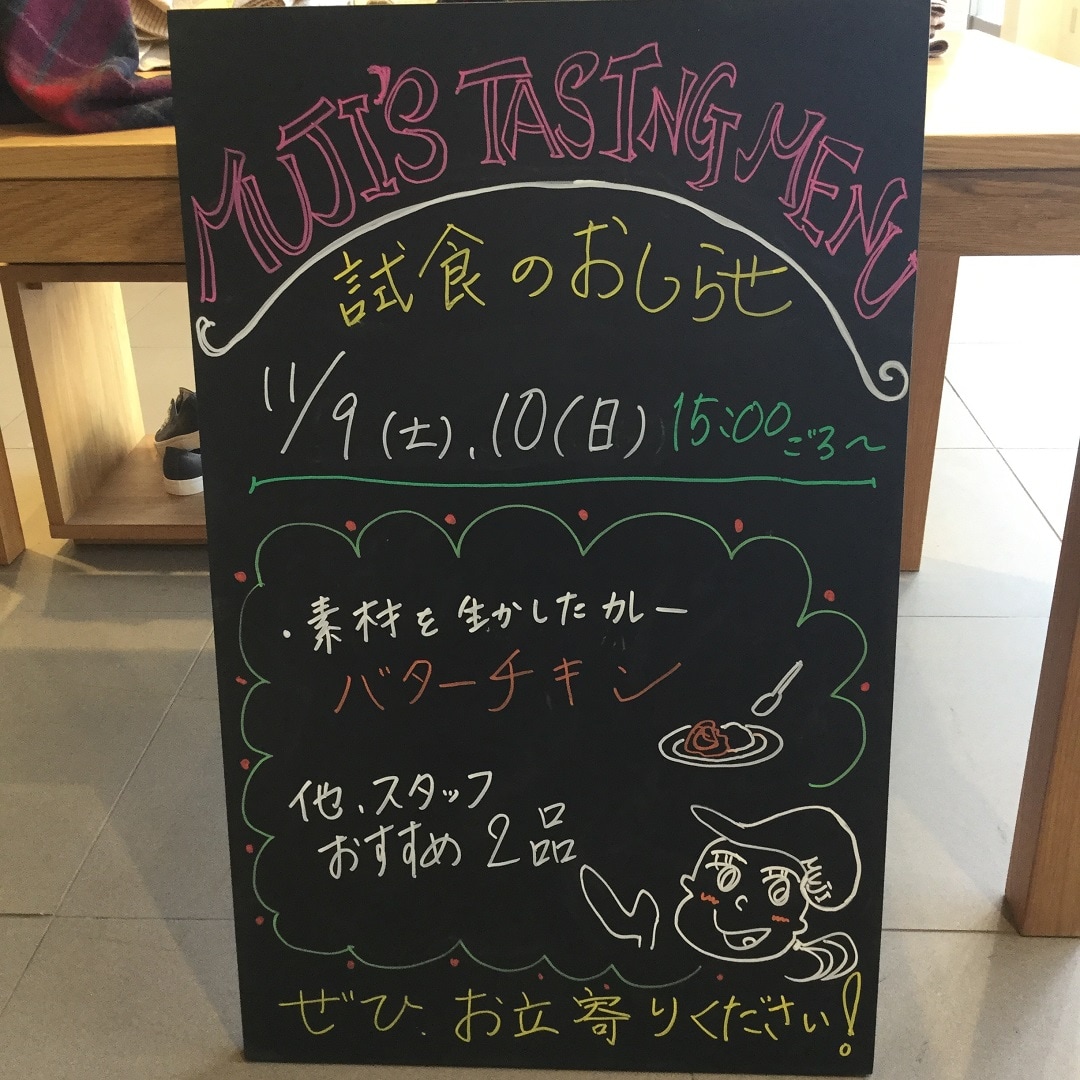 MUJI'S TASTNG MENU
試食のおしらせ
11/9(土).10(日) 15:00ごろ〜
・素材を生かしたカレー
バターチキン
他、スタッフ
おすすめ 2品
MUJI
ぜひ.お立寄りください!